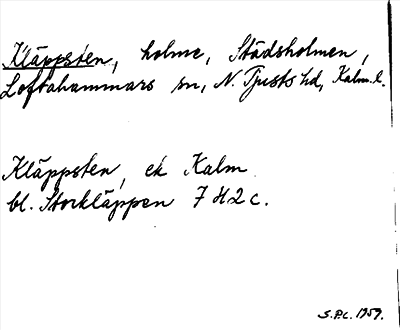 Kläppsten, holme, Städsholmen,
Loftahammars sn, N. Tjusts hd, Kalm. l.
Kläppsten, ek Kalm
bl. Storkläppen 7 H 2 c.
S.P.L. 1959.